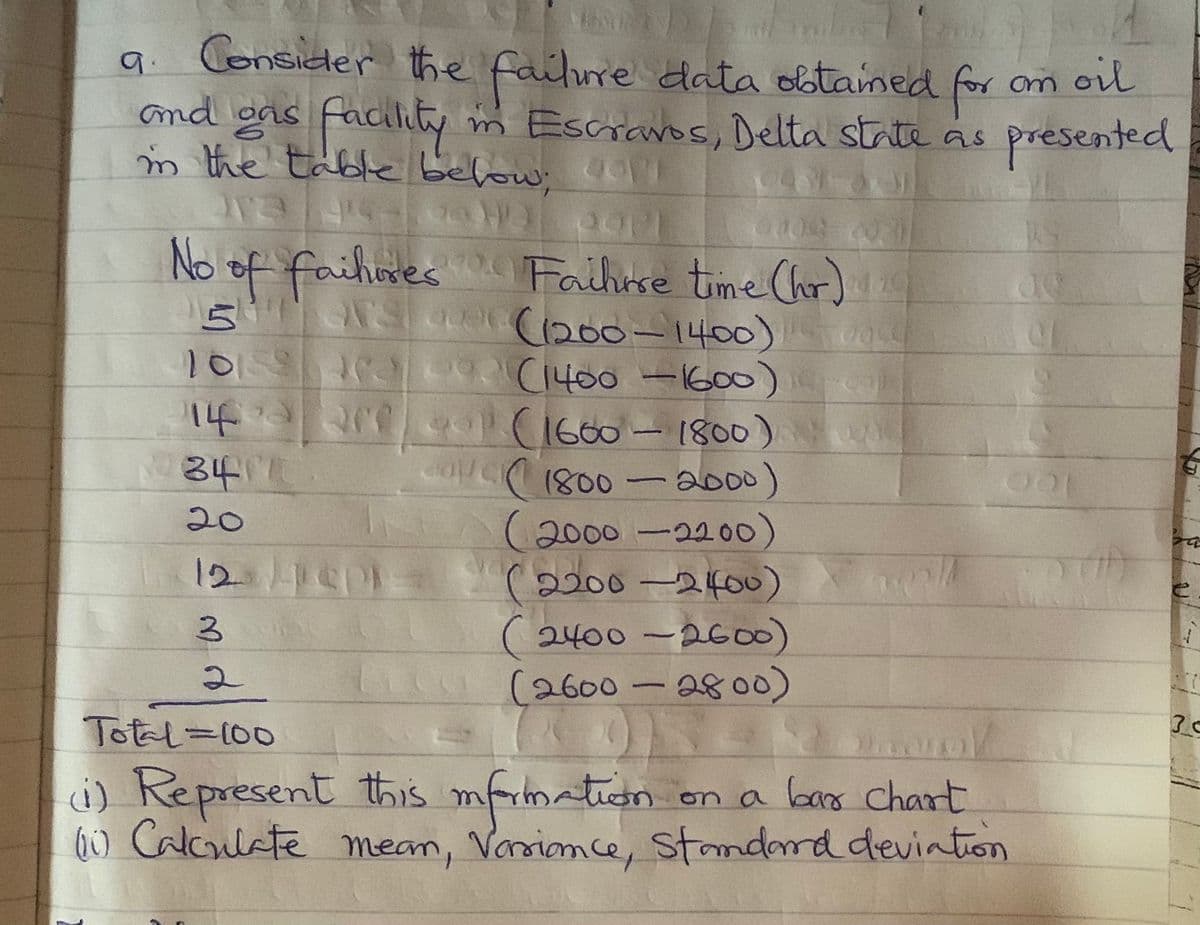 a. Consider the failure data obtained for an oil
and gas facility in Escravos, Delta state as presented
in the table below;
No of failures Failure time (hr)
5 (1200-1400)
10 (1400-1600)
14 (1600-1800)
34 (1800-2000)
20 (2000-2200)
12 (2200-2400)
3 (2400-2600)
2 (2600-2800)
Total=100
(i) Represent this information on a bar chart
(ii) Calculate mean, Variance, Standard deviation